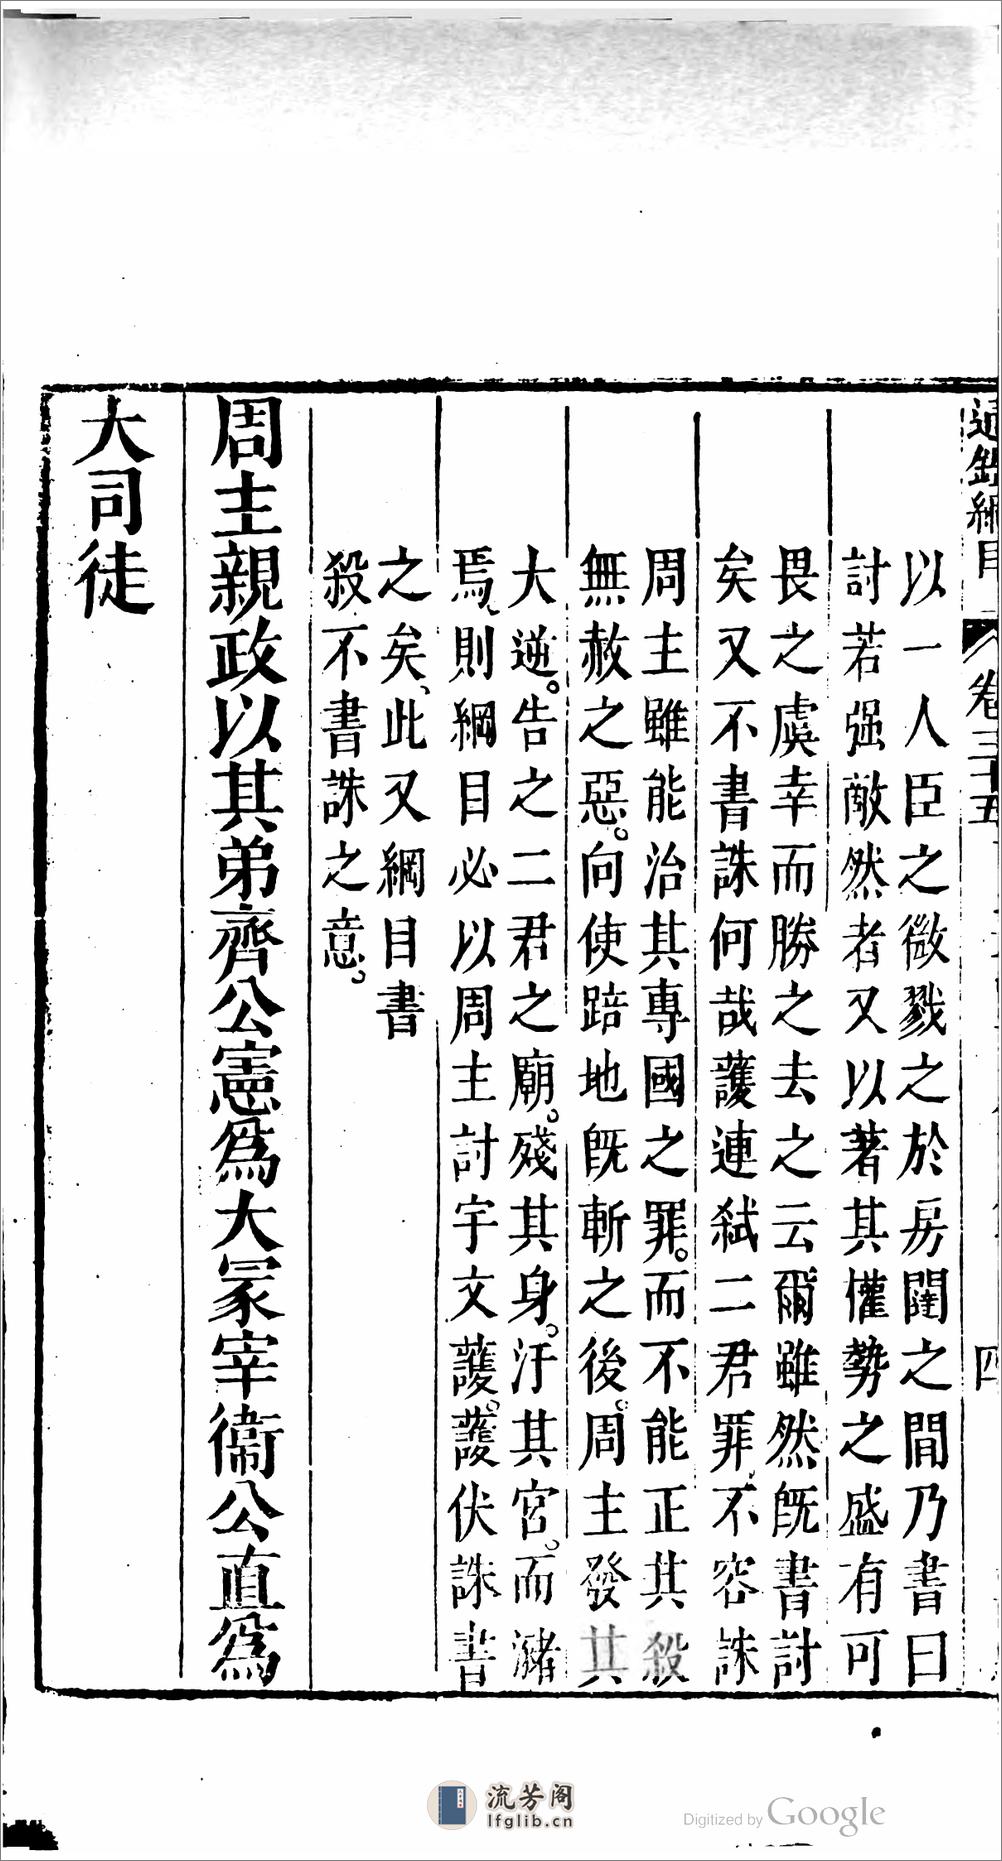 通鑑綱目 卷三十五 四
以一人臣之微戮之於房闥之間乃書曰
討若强敵然者又以著其權勢之盛有可
畏之虞幸而勝之去之云爾雖然旣書討
矣又不書誅何哉護連弑二君罪不容誅
周主雖能治其專國之罪。而不能正其殺
無赦之惡。向使踣地旣斬之後。周主發其
大逆。告之二君之廟。殘其身。汙其宮。而瀦
焉、則綱目必以周主討宇文護。護伏誅書
之矣、此又綱目書
殺不書誅之意。
周主親政以其弟齊公憲爲大冢宰衞公直爲
大司徒
流芳阁
lfglib.cn
Digitized by Google